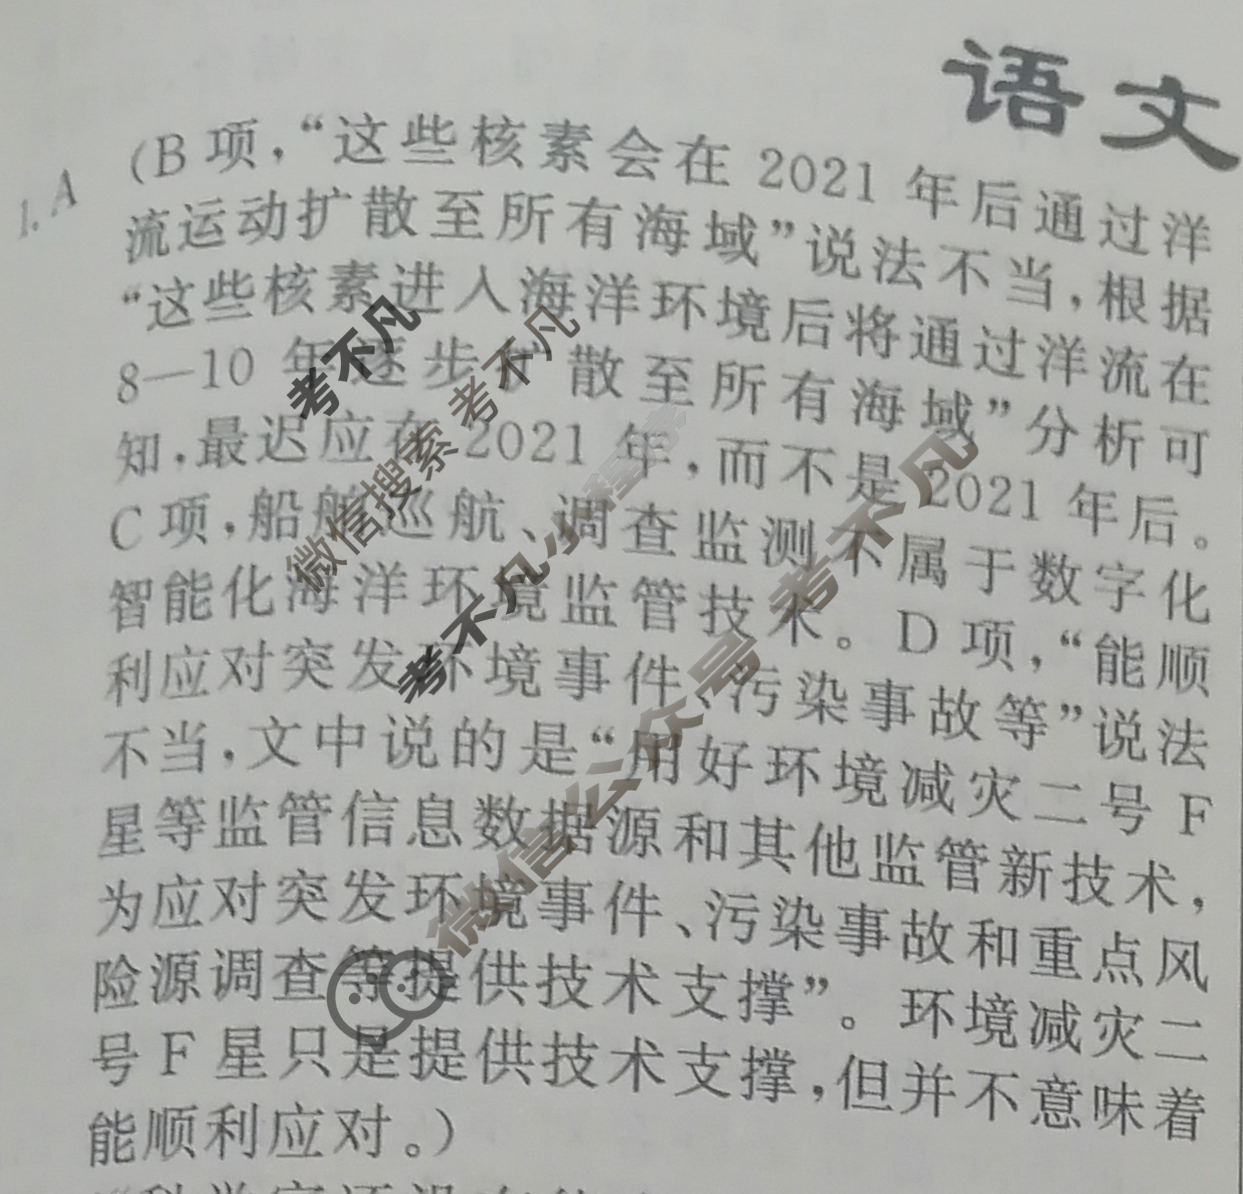 语文
1. A (B 项，“这些核素会在 2021 年后通过洋
流运动扩散至所有海域”说法不当，根据
“这些核素进入海洋环境后将通过洋流在
8—10 年逐步扩散至所有海域”分析可
知，最迟应在 2021 年，而不是 2021 年后。
C 项，船舶巡航、调查监测不属于数字化
智能化海洋环境监管技术。D 项，“能顺
利应对突发环境事件、污染事故等”说法
不当，文中说的是“用好环境减灾二号 F
星等监管信息数据源和其他监管新技术，
为应对突发环境事件、污染事故和重点风
险源调查等提供技术支撑”。环境减灾二
号 F 星只是提供技术支撑，但并不意味着
能顺利应对。)
考不凡
微信搜索 考不凡
考不凡小程序
微信公众号 考不凡